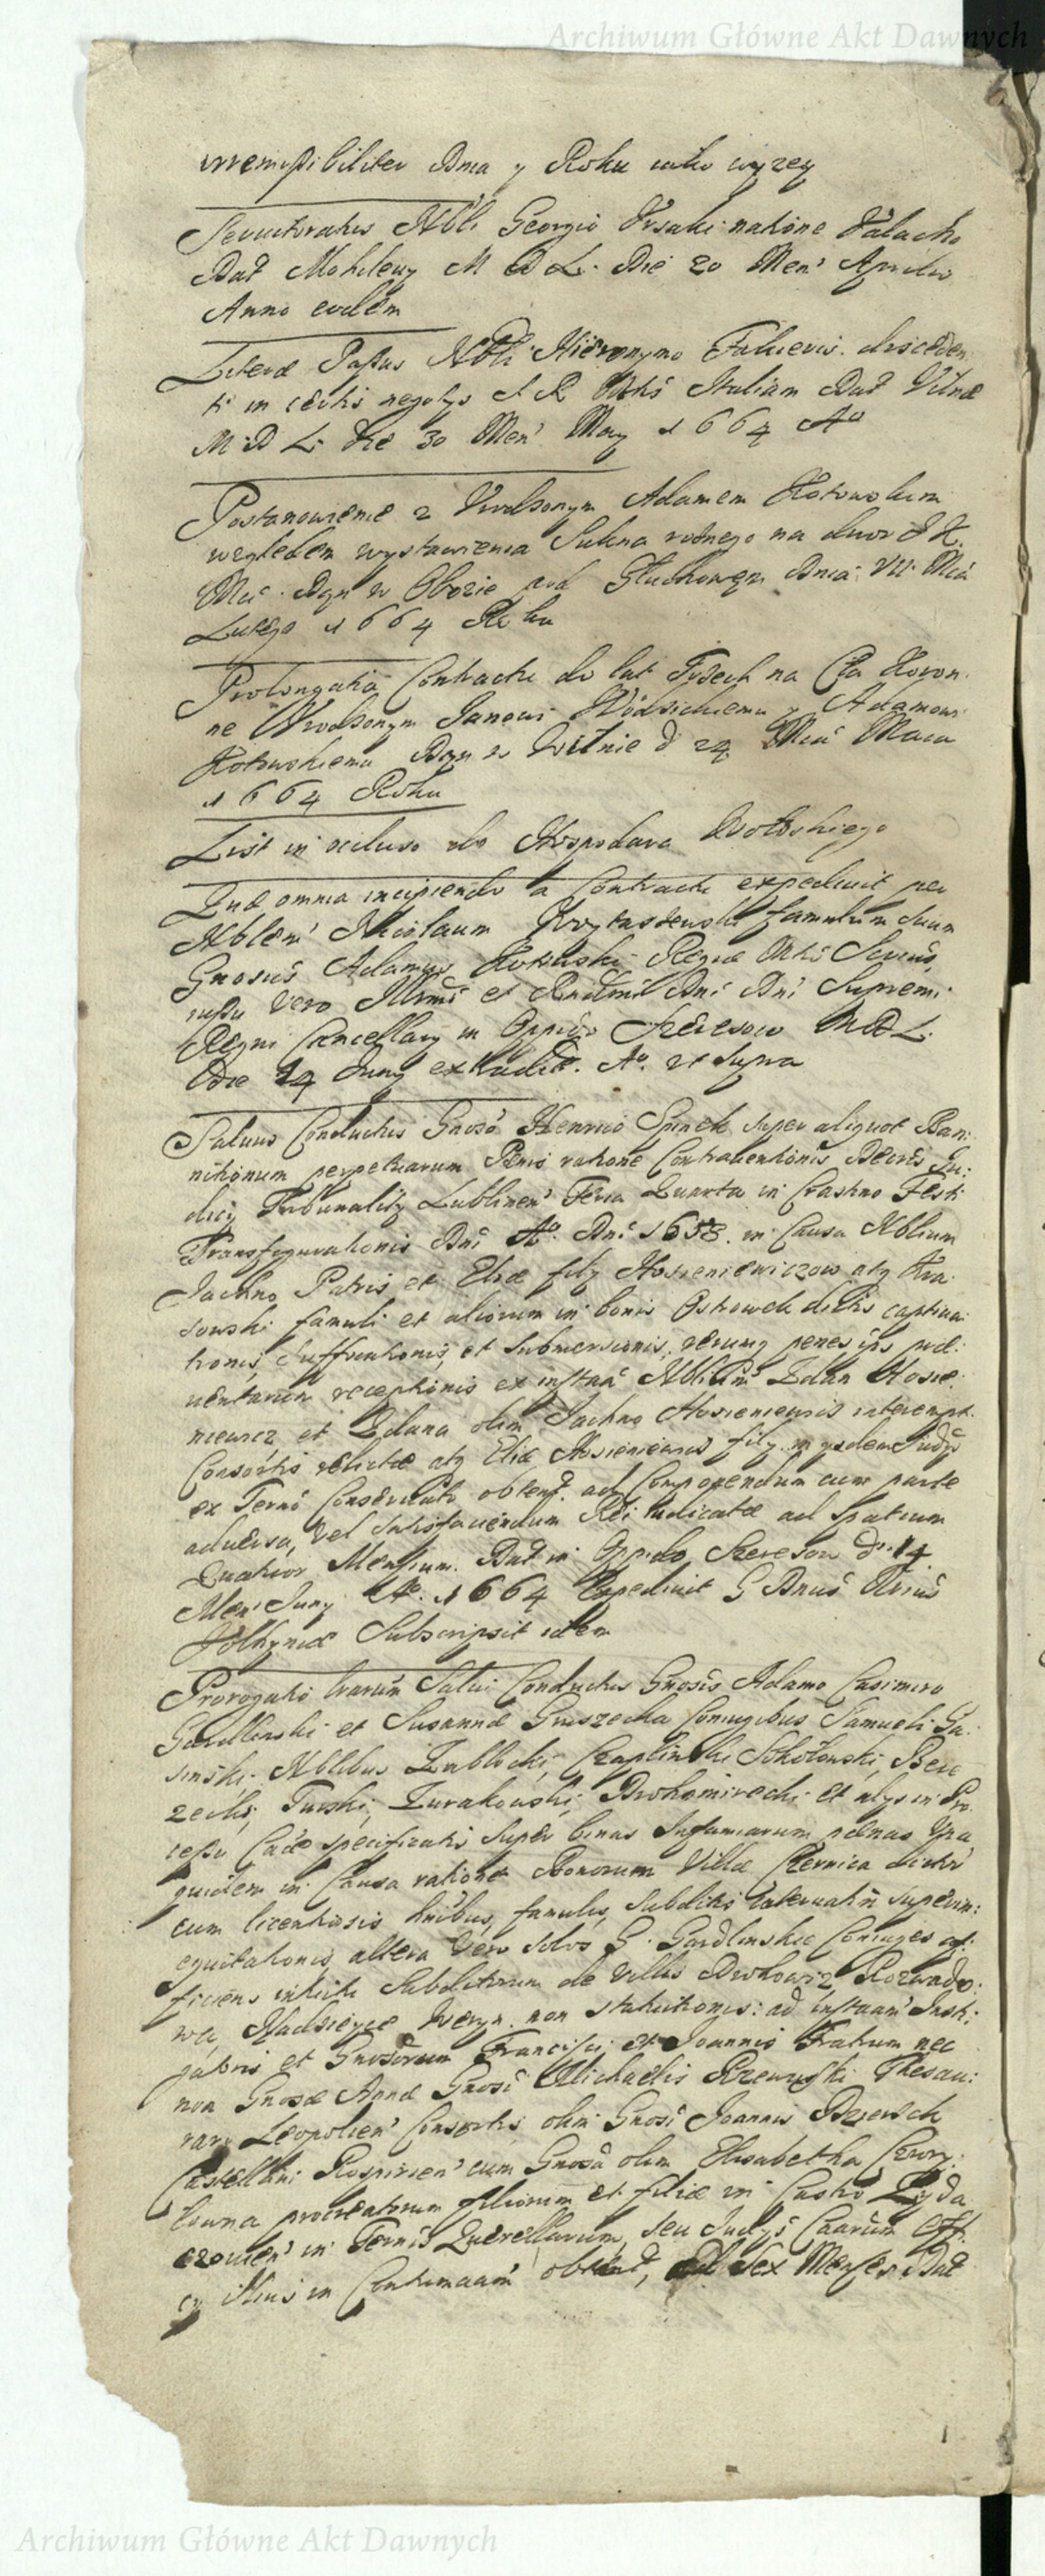 Archiwum Główne Akt Dawnych
irremissibiliter Dnia y Roku iako wyzey
Servitoratus Nbli Georgio Ursaki natione Valacho
Dat Mohilewy M D L. Die 20 Men' Aprilis
Anno eodem
Literæ Passus Nbli Hieronymo Falieris. discéden
ti in certis negotys S R Mtis Italiam Dat Vilnæ
M D L. Die 30 Men' May 1664 Ao
Postanowienie z Urodzonym Adamem Kotowskim
względem wystawienia Sukna roznego na dwor J K.
Mci. Dan w Obozie pod Głuchowem Dnia VII Mca
Lutego 1664 Roku
Prolongatia Contractu do lat Trzech na Cła Koron.
ne Urodzonym Janowi Wodzickiemu y Adamowi
Kotowskiemu Dan w Wilnie d 24 Mca Maia
1664 Roku
List in occluso do Hospodara Wołoskiego
Quæ omnia incipiendo a Contractu expedivit per
Nblem' Nicolaum famulum suum
Gnosus Adamus Kotowski Regiæ Mtis Secrius,
iussu vero Illrmi et Rndmi Dni Dni Supremi
Regni Cancellary in Oppido Szereszow M D L.
Die 24 Juny extradit. Ao. ut supra
Salvus Conductus Gnoso Henrico Spinek super aliquot Ban:
nitionum perpetuarum Pænis ratione Contraventionis Decreti Ju:
dicy Tribunality Lublinen' Feria Quarta in Crastino Festi
Transfigurationis Dni Ao. Dni 1658. in Causa Nblium
Jachno Patris et Eliæ fily Hosieniewiczow atq
famuli et aliorum in bonis Ostrowek dictis captiva
tionis, suffocationis, et submersionis, rerumq penes ips
receptionis ex instan' Nblium Zdan Hosie:
niewicz et Zdana olim Jachno Hosieniewicz interempt.
Consortis relictæ atq Eliæ Hosieniewicz fily
ex Termo Conservato obtent. ad Componendum cum parte
adversa, vel satisfaciendum Rei iudicatæ ad spatium
Quatuor Mensium. Dat in Oppido Szereszow d. 14
Men' Juny Ao. 1664 Expedivit G Dnus
Volhyniæ Subscripsit idem
Prorogatio lrarum Salvi Conductus Gnosis Adamo Casimiro
Gardlinski et Susannæ Gruszecka Coniugibus Samueli Ga:
sinski. Nblibus Zabłocki, Czaplinski Sokołowski, Bere
zecki, Turski, Zurakowski, Drohomirecki et alys in Pro:
cessu Cadæ specificatis super binas Infamiarum pænas Una
quidem in Causa ratione Bonorum Villæ Czernica dictæ
cum licentiosis hnibus, famulis, subditis superin:
equitationis, altera vero solos G. Gardlinskie Coniuges af:
ficiens intuitu Subditorum de Villis Drohowiz, Rozwado:
wa, Nadzieyæ non statuitionis: ad instaam' Insti:
gatoris et Gnosorum Francisci et Joannis Fratrum nec
non Gnosæ Annæ Gnosi Michaelis Rzewuski Thesau:
rary Leopolien' Consortis olim Gnosi Joannis Dzierzek
Castellani cum Gnosa olim Elisabetha
procreatorum filiorum et filiæ in Castro Zyda
czovien' in Termis Querellarum, seu Judys Caarum Off.
cy illius in Contumaam' obtent, ad sex Menses Dat
Archiwum Główne Akt Dawnych